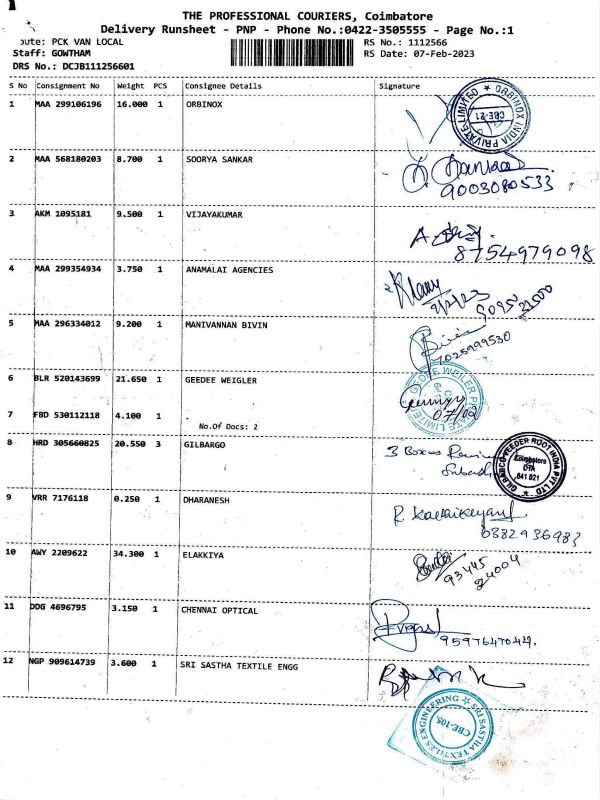 THE PROFESSIONAL COURIERS, Coimbatore
Delivery Runsheet - PNP - Phone No.:0422-3505555 - Page No.:1
oute: PCK VAN LOCAL
RS No.: 1112566
Staff: GOWTHAM
RS Date: 07-Feb-2023
DRS No.: DCJB111256601
S No Consignment No Weight PCS Consignee Details Signature
1 MAA 299106196 16.000 1 ORBINOX
ORBINOX INDIA PRIVATE LIMITED
CBE-21
2 MAA 568180203 8.700 1 SOORYA SANKAR
9003080533
3 AKM 1095181 9.500 1 VIJAYAKUMAR
8754979098
4 MAA 299354934 3.750 1 ANAMALAI AGENCIES
5 MAA 296334012 9.200 1 MANIVANNAN BIVIN
7025999530
6 BLR 520143699 21.650 1 GEEDEE WEIGLER
7 FBD 530112118 4.100 1
No.Of Docs: 2
07/02
8 HRD 305660825 20.550 3 GILBARGO
3 Boxes
GILBARCO VEEDER ROOT INDIA PVT LTD
Coimbatore
641 021
9 VRR 7176118 0.250 1 DHARANESH
R Karthikeyan
10 AWY 2209622 34.300 1 ELAKKIYA
93445
24004
11 DDG 4696795 3.150 1 CHENNAI OPTICAL
9597647044.
12 NGP 909614739 3.600 1 SRI SASTHA TEXTILE ENGG
SRI SASTHA TEXTILES ENGINEERING
CBE-105.